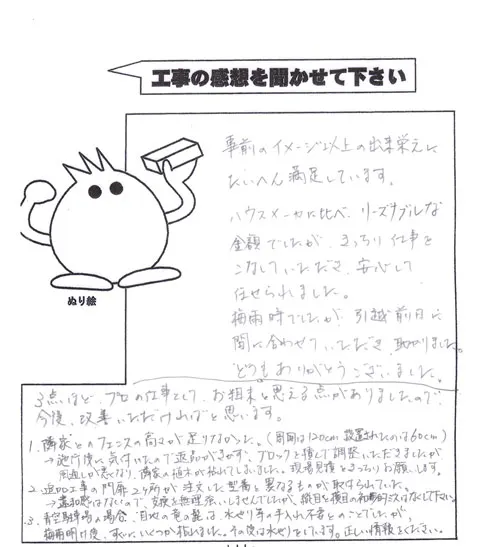 工事の感想を聞かせて下さい
事前のイメージ以上の出来栄えに
たいへん満足しています。
ハウスメーカに比べ、リーズナブルな
金額でしたが、きっちり仕事を
こなしていただき、安心して
任せられました。
梅雨時でしたが、引越前日に
間に合わせていただき、助かりました。
どうもありがとうございました。
ぬり絵
3点ほど、プロの仕事として、お粗末と思える点がありましたので、
今後、改善いただければと思います。
1. 隣家とのフェンスの高さが足りなかった。(周囲は120cm 設置されたのは60cm)
→施行後に気付いたので返品ができず、ブロックを積して調整いただきましたが
風通しが悪くなり、隣家の植木が枯れてしまいました。現場見積をきっちりお願いします。
2. 追加工事の門扉2ヶ所が注文した型番と異なるものが取付られていた。
→違和感はないので、交換を無理強いしませんでしたが、
3. 青空駐車場の場合、目地の竜の髭は、水やり等の手入れ不要とのことでしたが、
梅雨明け後、すぐにいくつか枯れました。その後は水やりをしています。正しい情報をください。